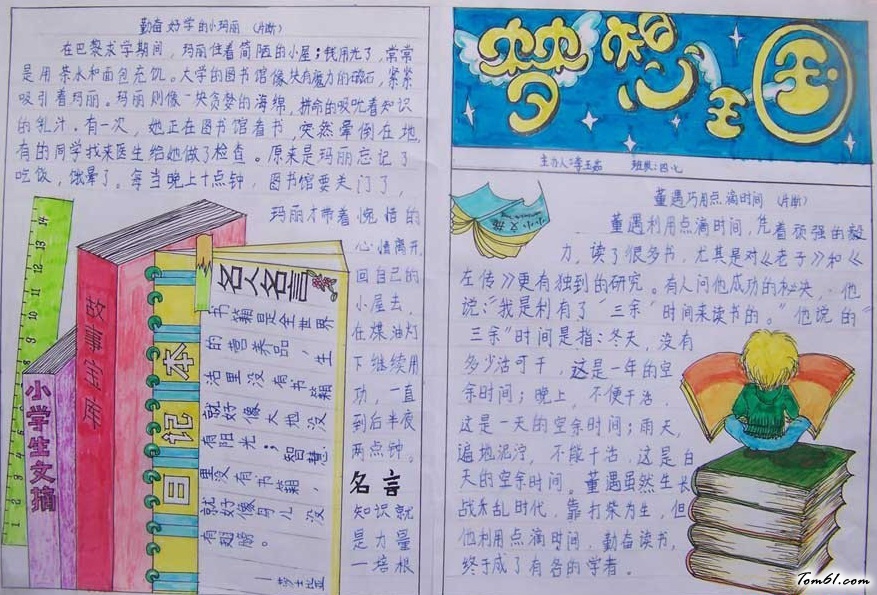 勤奋好学的小玛丽（片断）
在巴黎求学期间，玛丽住着简陋的小屋；钱用光了，常常
是用茶水和面包充饥。大学的图书馆像块有魔力的磁石，紧紧
吸引着玛丽。玛丽则像一块贪婪的海绵，拼命的吸吮着知识
的乳汁。有一次，她正在图书馆看书，突然晕倒在地，
有的同学找来医生给她做了检查。原来是玛丽忘记了
吃饭，饿晕了。每当晚上十点钟，图书馆要关门了，
玛丽才带着惋惜的
心情离开，
回自己的
小屋去，
在煤油灯
下继续用
功，一直
到后半夜
两点钟。
名言
知识就
是力量
—培根
14 13 12 11 10 9 8 7 6 5 4 3 2 1
小学生文摘
故事宝库
日记本
名人名言
书籍是全世界
的营养品，生
活里没有书籍
就好像大地没
有阳光；智慧
里没有书籍，
就好像鸟儿没
有翅膀。
—莎士比亚
梦想王国
主办人:李玉 班级:四.七
董遇巧用点滴时间（片断）
小小文摘
董遇利用点滴时间，凭着顽强的毅
力，读了很多书，尤其是对《老子》和《
左传》更有独到的研究。有人问他成功的秘诀，他
说：“我是利有了“三余”时间来读书的。”他说的“
三余”时间是指：冬天，没有
多少活可干，这是一年的空
余时间；晚上，不便干活，
这是一天的空余时间；雨天，
遍地泥泞，不能干活，这是白
天的空余时间。董遇虽然生长
战禾乱时代，靠打柴为生，但
他利用点滴时间，勤奋读书，
终于成了有各的学者。
Tom61.com